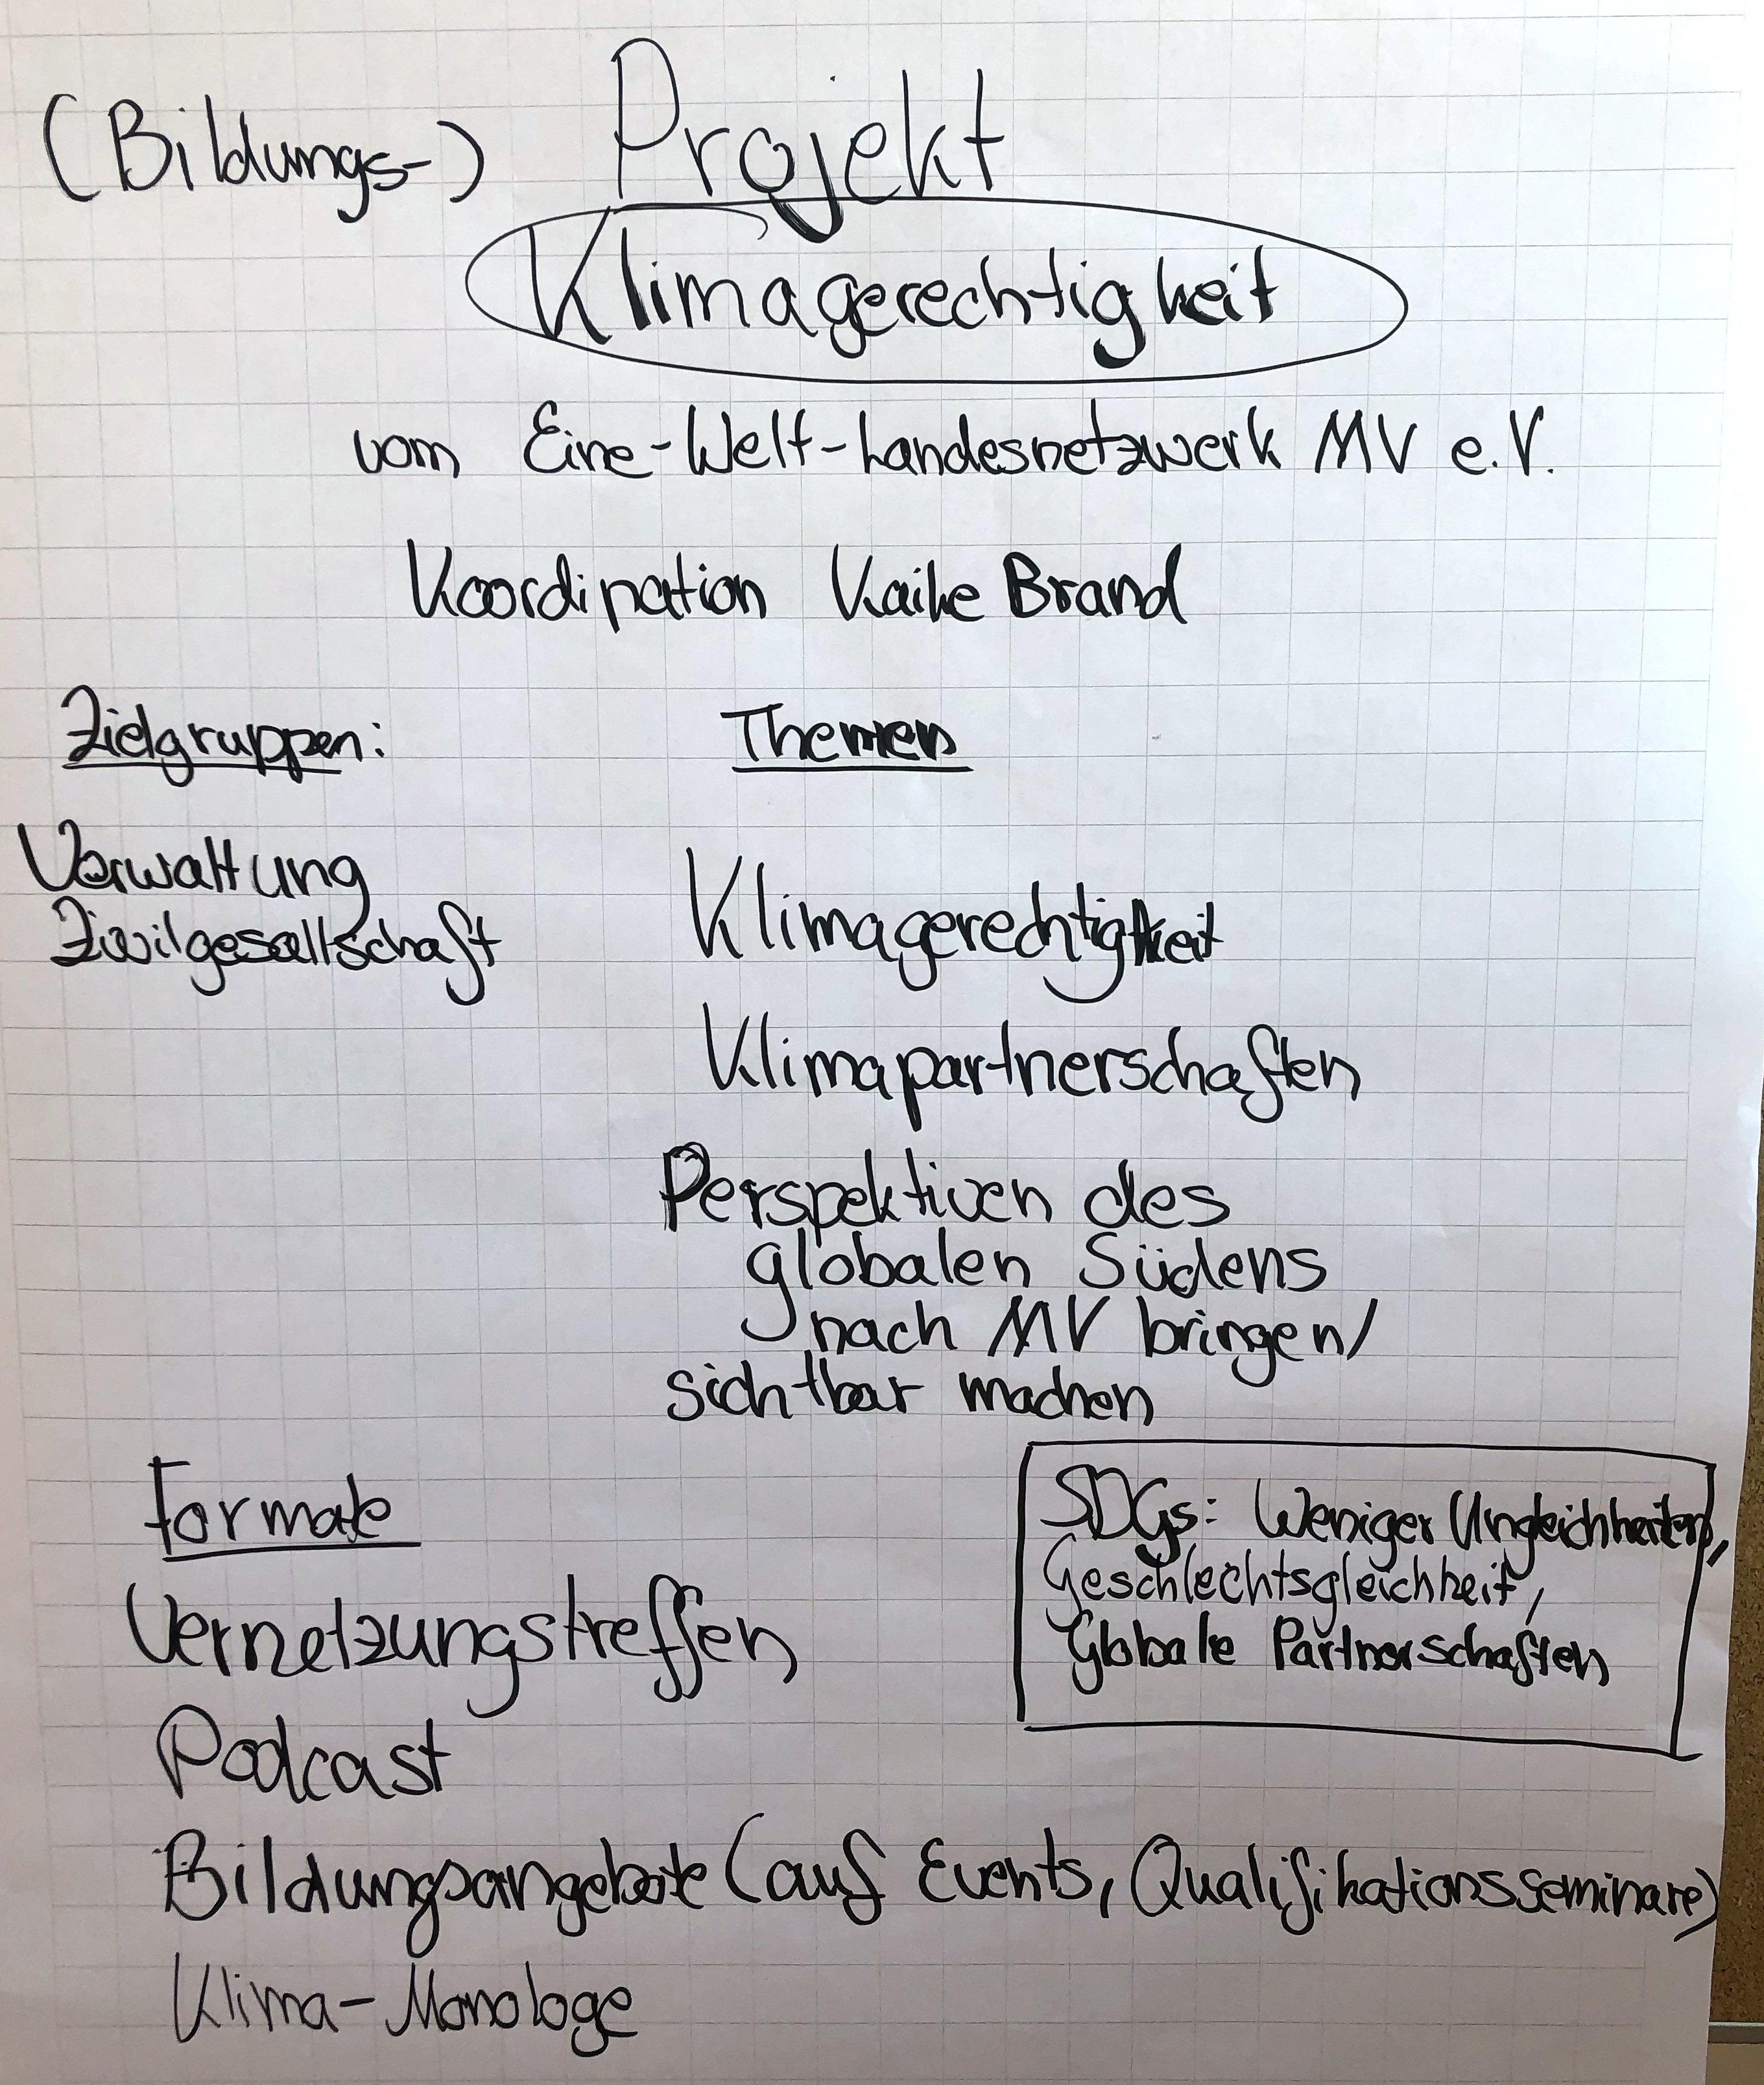 (Bildungs-) Projekt
Klimagerechtigkeit
vom Eine-Welt-Landesnetzwerk MV e.V.
Koordination Kaike Brand
Zielgruppen:
Verwaltung
Zivilgesellschaft
Themen
Klimagerechtigkeit
Klimapartnerschaften
Perspektiven des
globalen Südens
nach MV bringen/
sichtbar machen
Formate
Vernetzungstreffen
Podcast
Bildungsangebote (auf Events, Qualifikationsseminare)
Klima-Monologe
SDGs: Weniger Ungleichheiten,
Geschlechtsgleichheit,
Globale Partnerschaften